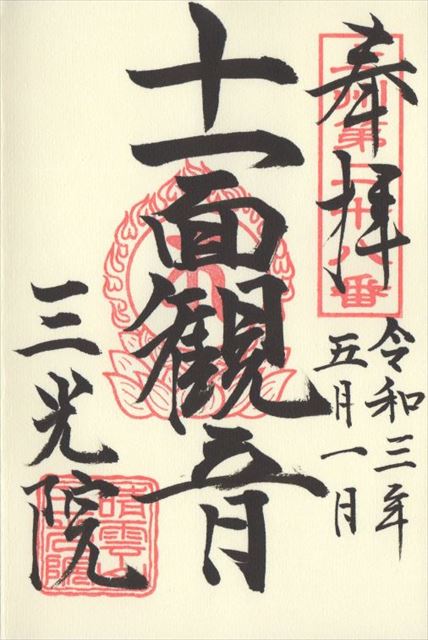 奉拝
令和三年
五月一日
十一面観音
三光院